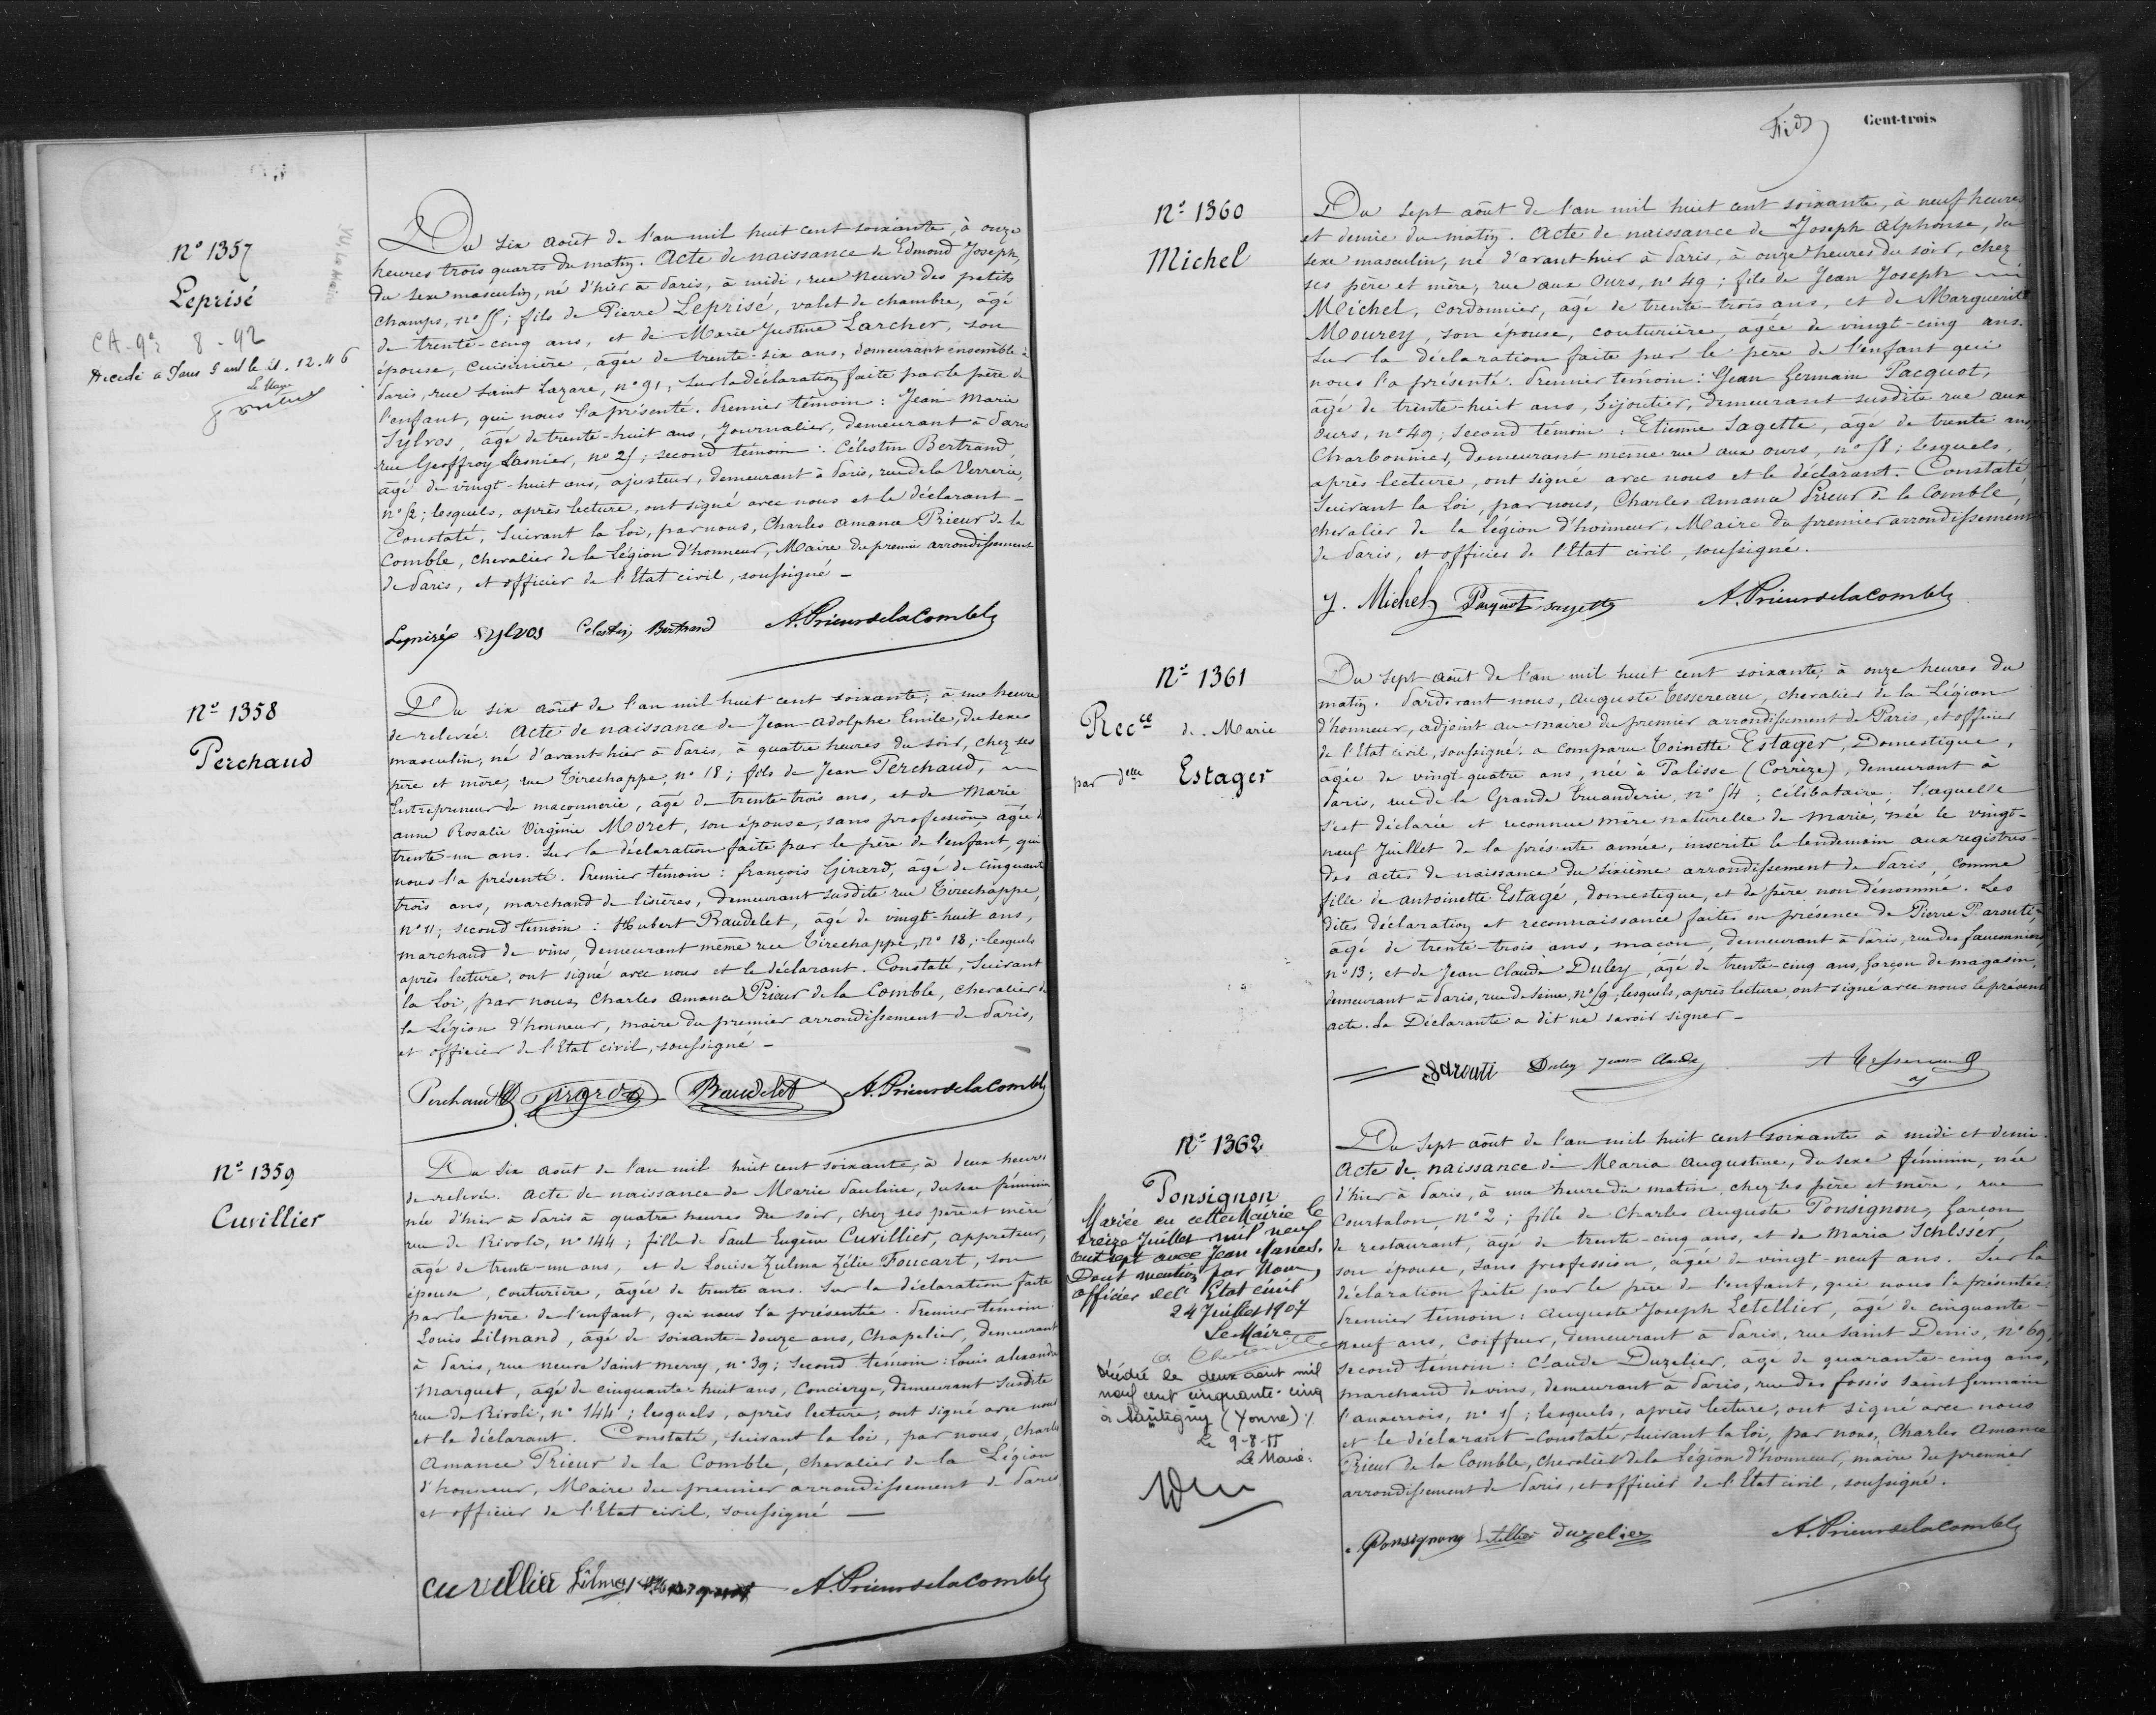 N° 1357
Leprisé
8 - 92
Décédé à Paris le 21.12.46
Le Maire
Du six août de l'an mil huit cent soixante, à onze
heures trois quarts du matin. Acte de naissance de Edmond Joseph,
du sexe masculin, né d'hier à Paris, à midi, rue Neuve des petits
champs, n° 55; fils de Pierre Leprisé, valet de chambre, âgé
de trente-cinq ans, et de Marie Justine Larcher, son
épouse, cuisinière, âgée de trente-six ans, demeurant ensemble à
Paris, rue Saint Lazare, n° 91, Sur la déclaration faite par le père de
l'enfant, qui nous l'a présenté. Premier témoin : Jean Marie
Sylvos, âgé de trente-huit ans, Journalier, demeurant à Paris
rue Geoffroy Lasnier, n° 25; second témoin : Célestin Bertrand,
âgé de vingt-huit ans, ajusteur, demeurant à Paris, rue de la Verrerie,
n° 52; lesquels, après lecture, ont signé avec nous et le déclarant -
Constaté, Suivant la Loi, par nous, Charles Amance Prieur de la
Comble, chevalier de la Légion d'honneur, Maire du premier arrondissement
de Paris, et officier de l'Etat civil, soussigné -
Leprisé Sylvos Célestin Bertrand A. Prieur de la Comble
N° 1358
Perchaud
Du six août de l'an mil huit cent soixante, à une heure
de relevée. Acte de naissance de Jean Adolphe Emile, du sexe
masculin, né d'avant-hier à Paris, à quatre heures du soir, chez ses
père et mère, rue Tirechappe, n° 18; fils de Jean Perchaud,
Entrepreneur de maçonnerie, âgé de trente-trois ans, et de Marie
anne Rosalie Virginie Moret, son épouse, sans profession, âgée de
trente-un ans. Sur la déclaration faite par le père de l'enfant, qui
nous l'a présenté. Premier témoin : françois Girard, âgé de cinquante
trois ans, marchand de lisières, demeurant susdite rue Tirechappe,
n° 11; second témoin : Hubert Baudelet, âgé de vingt-huit ans,
marchand de vins, demeurant même rue Tirechappe, n° 18; lesquels
après lecture, ont signé avec nous et le déclarant. Constaté, Suivant
la Loi, par nous, Charles Amance Prieur de la Comble, chevalier de
la Légion d'honneur, maire du premier arrondissement de Paris,
et officier de l'Etat civil, soussigné -
Perchaud Girard Baudelet A. Prieur de la Comble
N° 1359
Cuvillier
Du six août de l'an mil huit cent soixante, à deux heures
de relevée. Acte de naissance de Marie Pauline, du sexe féminin
née d'hier à Paris à quatre heures du soir, chez ses père et mère
rue de Rivoli, n° 144; fille de Paul Eugène Cuvillier, appréteur,
âgé de trente-un ans, et de Louise Zulma Zélie Foucart, son
épouse, couturière, âgée de trente ans. Sur la déclaration faite
par le père de l'enfant, qui nous l'a présentée. Premier témoin
Louis Lilmand, âgé de soixante-douze ans, Chapelier, demeurant
à Paris, rue neuve Saint Merry, n° 39; second témoin : Louis alexandre
Marquet, âgé de cinquante-huit ans, Concierge, demeurant susdite
rue de Rivoli, n° 144; lesquels, après lecture, ont signé avec nous
et le déclarant. Constaté, suivant la loi, par nous, Charles
Amance Prieur de la Comble, chevalier de la Légion
d'honneur, Maire du premier arrondissement de Paris
et officier de l'Etat civil, soussigné -
Cuvillier A. Prieur de la Comble
Cent-trois
N° 1360
Michel
Du sept août de l'an mil huit cent soixante, à neuf heures
et demie du matin. Acte de naissance de Joseph Alphonse, du
sexe masculin, né d'avant-hier à Paris, à onze heures du soir, chez
ses père et mère, rue aux Ours, n° 49; fils de Jean Joseph
Michel, Cordonnier, âgé de trente-trois ans, et de Marguerite
Mourey, son épouse, couturière, âgée de vingt-cinq ans.
Sur la déclaration faite par le père de l'enfant qui
nous l'a présenté. Premier témoin : Jean Germain Pacquot,
âgé de trente-huit ans, bijoutier, demeurant susdite rue aux
Ours, n° 49; second témoin : Etienne Sagette, âgé de trente ans,
Charbonnier, demeurant même rue aux ours, n° 51; lesquels,
après lecture, ont signé avec nous et le déclarant. Constaté
Suivant la Loi, par nous, Charles Amance Prieur de la Comble,
chevalier de la légion d'honneur, Maire du premier arrondissement
de Paris, et officier de l'Etat civil, soussigné.
J. Michel Paquot sagette A. Prieur de la Comble
N° 1361
Recce de Marie
par delle Estager
Du sept août de l'an mil huit cent soixante, à onze heures du
matin. Pardevant nous, Auguste Tessereau, chevalier de la Légion
d'honneur, adjoint au maire du premier arrondissement de Paris, et officier
de l'Etat civil, soussigné. a comparu Toinette Estager, Domestique,
âgée de vingt-quatre ans, née à Palisse (Corrèze), demeurant à
Paris, rue de la Grande Truanderie, n° 54; célibataire; laquelle
s'est déclarée et reconnue mère naturelle de marie, née le vingt-
neuf Juillet de la présente année, inscrite le lendemain aux registres
des actes de naissance du sixième arrondissement de Paris, comme
fille de antoinette Estagé, domestique, et de père non dénommé. Les
dites déclaration et reconnaissance faites en présence de Pierre Parouti,
âgé de trente-trois ans, maçon, demeurant à Paris, rue des fauconniers
n° 13; et de Jean Claude Duley, âgé de trente-cinq ans, garçon de magasin,
demeurant à Paris, rue de Seine, n° 59; lesquels, après lecture, ont signé avec nous le présent
acte. La Déclarante a dit ne savoir signer -
Parouti Duley Jean Claude A Tessereau
N° 1362
Ponsignon
Mariée en cette Mairie le
treize Juillet mil neuf
cent sept avec Jean
Dont mention par Nous,
Officier de l'Etat civil
24 Juillet 1907
Le Maire
Décédée le deux août mil
neuf cent cinquante-cinq
à Sautigny (Yonne) ./.
Le 9-8-55
Le Maire:
Du sept août de l'an mil huit cent soixante à midi et demie.
Acte de naissance de Maria Augustine, du sexe féminin, née
d'hier à Paris, à une heure du matin, chez ses père et mère, rue
Courtalon, n° 2; fille de Charles Auguste Ponsignon, Garçon
de restaurant, âgé de trente-cinq ans, et de Maria Schlssér,
son épouse, sans profession, âgée de vingt-neuf ans. Sur la
déclaration faite par le père de l'enfant, qui nous l'a présentée.
Premier témoin : Auguste Joseph Letellier, âgé de cinquante-
neuf ans, Coiffeur, demeurant à Paris, rue Saint Denis, n° 69,
second témoin : Claude Duzelier, âgé de quarante-cinq ans,
marchand de vins, demeurant à Paris, rue des fossés Saint germain
l'auxerrois, n° 15; lesquels, après lecture, ont signé avec nous
et le déclarant - Constaté, Suivant la loi, par nous, Charles Amance
Prieur de la Comble, chevalier de la Légion d'honneur, maire du premier
arrondissement de Paris, et officier de l'Etat civil, soussigné.
Ponsignon Letellier Duzelier A. Prieur de la Comble